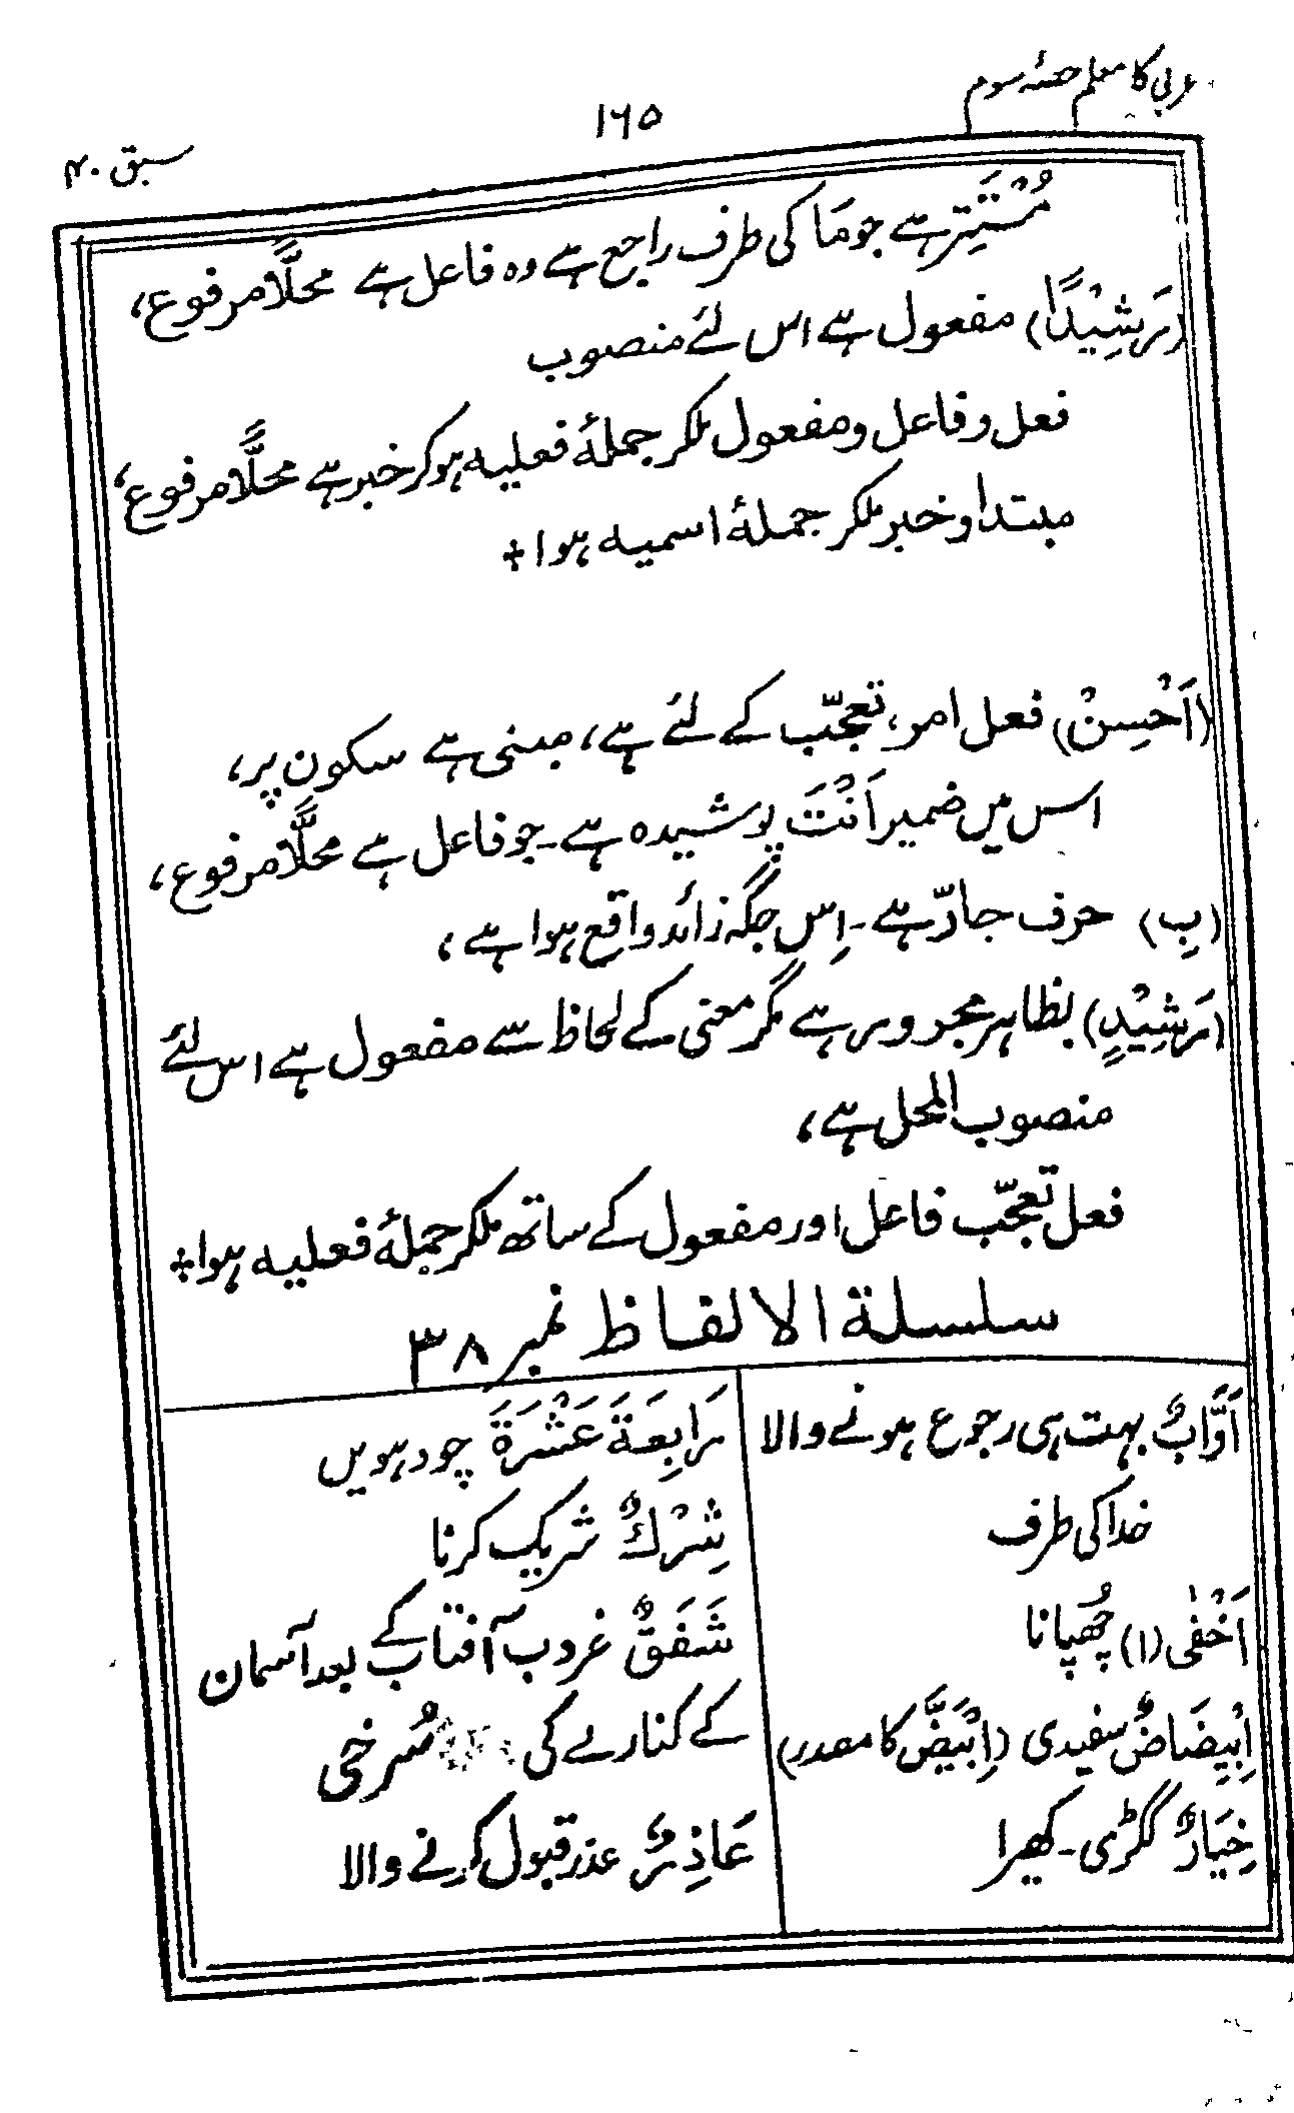 عربی کا معلم حصّہ سوم
۱۶۵
سبق ۴۰
مُسْتَتِر ہے جو مَا کی طرف راجع ہے وہ فاعل ہے محلًّا مرفوع،
(رَشِیْدًا) مفعول ہے اس لئے منصوب
فعل و فاعل و مفعول ملکر جملۂ فعلیہ ہوکر خبر ہے محلًّا مرفوع،
مبتدا و خبر ملکر جملۂ اسمیہ ہوا +
(اَحْسِنْ) فعل امر، تعجّب کے لئے ہے، مبنی ہے سکون پر،
اس میں ضمیر اَنْتَ پوشیدہ ہے۔ جو فاعل ہے محلًّا مرفوع،
(بِ) حرف جارّ ہے۔ اِس جگہ زائد واقع ہوا ہے،
(رَشِیْدٍ) بظاہر مجرور ہے مگر معنی کے لحاظ سے مفعول ہے اس لئے
منصوب المحل ہے،
فعل تعجّب فاعل اور مفعول کے ساتھ ملکر جملۂ فعلیہ ہوا +
سلسلة الالفاظ نمبر ۳۸
اَوَّابٌ بہت ہی رجوع ہونے والا
خدا کی طرف
اَخْفٰی (۱) چُھپانا
اِبْیِضَاضٌ سفیدی (اِبْیَضَّ کا مصدر)
خِیَارٌ ککڑی۔ کھیرا
رَابِعَةَ عَشْرَةَ چودہویں
شِرْكٌ شریک کرنا
شَفَقٌ غروب آفتاب کے بعد آسمان
کے کنارے کی سُرخی
عَاذِرٌ عذر قبول کرنے والا